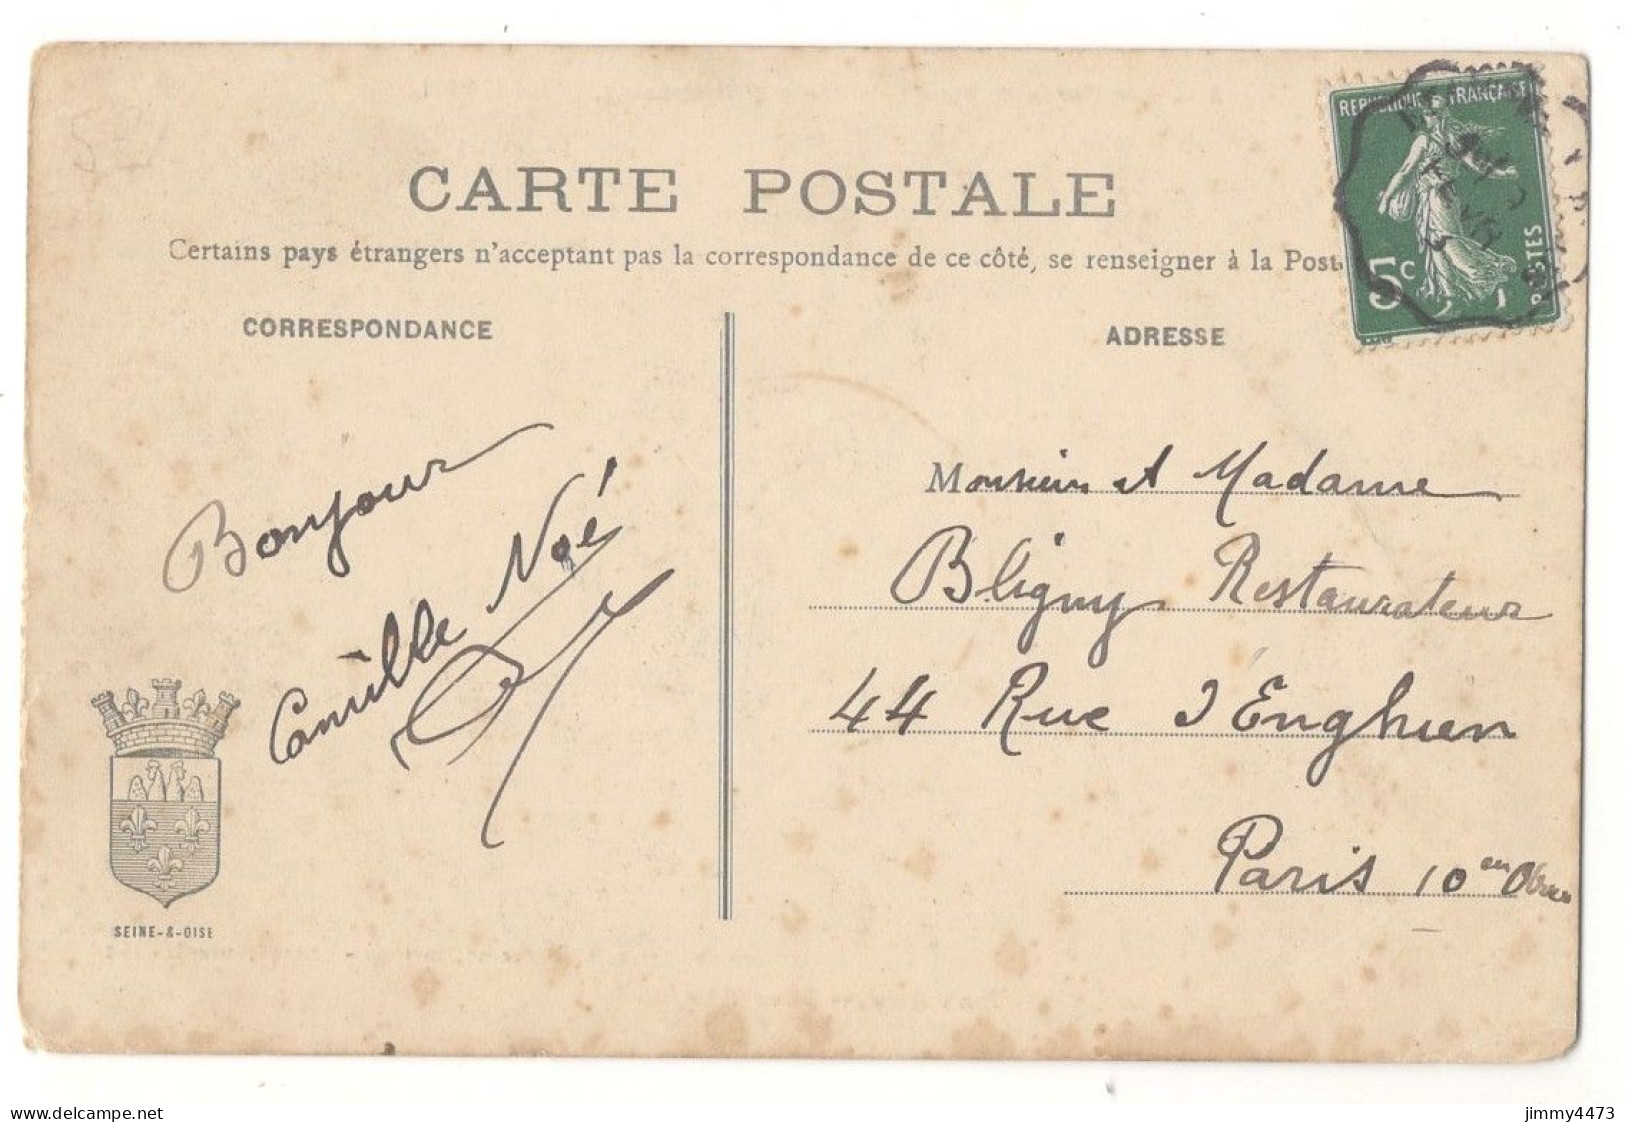 REPUBLIQUE FRANÇAISE
CARTE POSTALE
Certains pays étrangers n'acceptant pas la correspondance de ce côté, se renseigner à la Post
5c
POSTES
CORRESPONDANCE
Bonjour
Camille Noé
SEINE-&-OISE
ADRESSE
Monsieur et Madame
Bligny Restaurateur
44 Rue d'Enghien
Paris 10
www.delcampe.net
jimmy4473